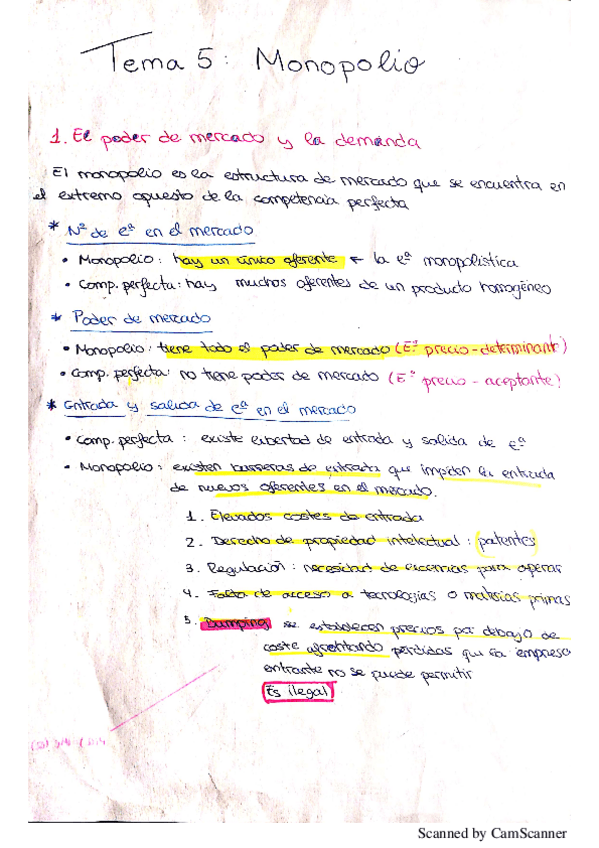 Tema 5: Monopolio
1. El poder de mercado y la demanda
El monopolio es la estructura de mercado que se encuentra en
el extremo opuesto de la competencia perfecta
* Nº de eª en el mercado
• Monopolio: hay un único oferente ← la eª monopolística
• Comp. perfecta: hay muchos oferentes de un producto homogéneo
* Poder de mercado
• Monopolio: tiene todo el poder de mercado (Eª precio-determinante)
• Comp. perfecta: no tiene poder de mercado (Eª precio-aceptante)
* Entrada y salida de eª en el mercado
• Comp. perfecta: existe libertad de entrada y salida de eª
• Monopolio: existen barreras de entrada que impiden la entrada
de nuevos oferentes en el mercado.
1. Elevados costes de entrada
2. Derecho de propiedad intelectual: (patentes)
3. Regulación: necesidad de licencias para operar
4. Falta de acceso a tecnologías o materias primas
5. Dumping se establecen precios por debajo de
coste afrontando pérdidas que la empresa
entrante no se puede permitir
Es ilegal
Scanned by CamScanner